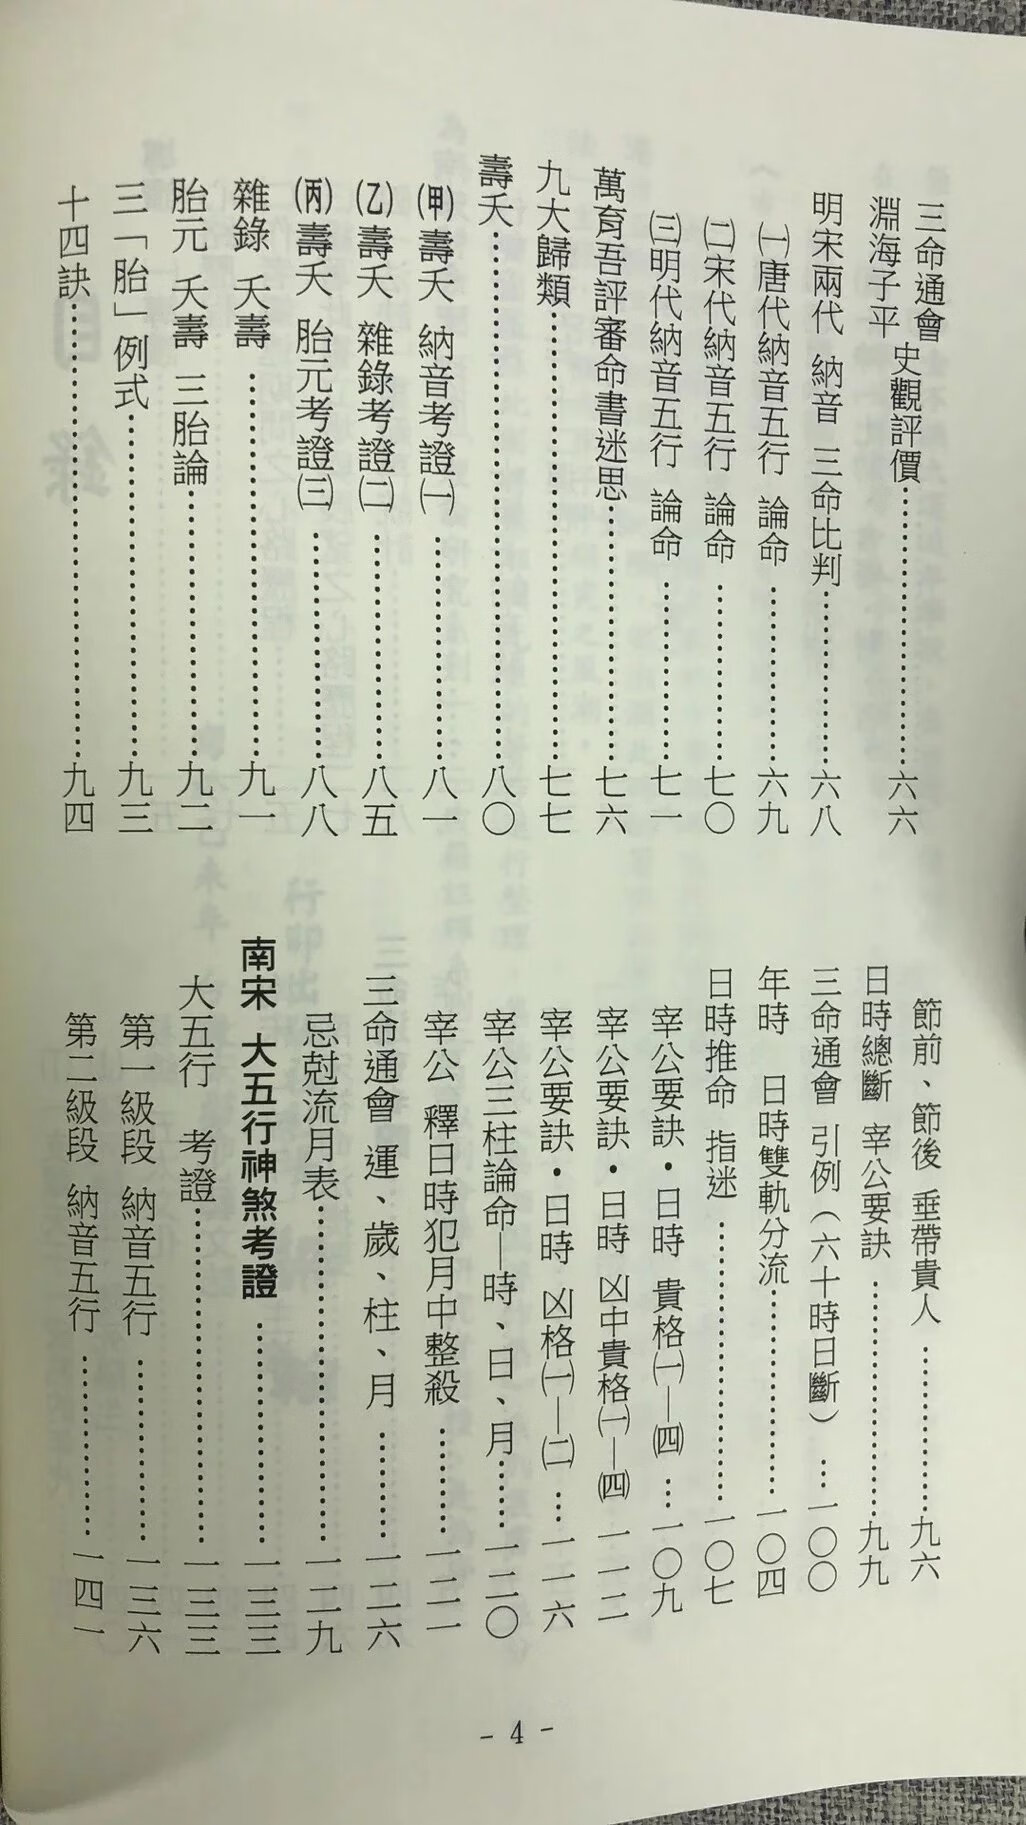 三命通會
淵海子平 史觀評價……六六
明宋兩代 納音 三命比判……六八
㈠唐代納音五行 論命……六九
㈡宋代納音五行 論命……七〇
㈢明代納音五行 論命……七一
萬育吾評審命書迷思……七六
九大歸類……七七
壽夭……八〇
㈙壽夭 納音考證㈠……八一
㈚壽夭 雜錄考證㈡……八五
㈛壽夭 胎元考證㈢……八八
雜錄 夭壽……九一
胎元 夭壽 三胎論……九二
三「胎」例式……九三
十四訣……九四
節前、節後 垂帶貴人……九六
日時總斷 宰公要訣……九九
三命通會 引例(六十時日斷)…一〇〇
年時 日時雙軌分流……一〇四
日時推命 指迷……一〇七
宰公要訣・日時 貴格㈠—㈣…一〇九
宰公要訣・日時 凶中貴格㈠—㈣一一二
宰公要訣・日時 凶格㈠—㈡…一一六
宰公三柱論命—時、日、月……一二〇
宰公 釋日時犯月中整殺……一二一
三命通會 運、歲、柱、月……一二六
忌尅流月表……一二九
南宋 大五行神煞考證……一三三
大五行 考證……一三三
第一級段 納音五行……一三六
第二級段 納音五行……一四一
- 4 -